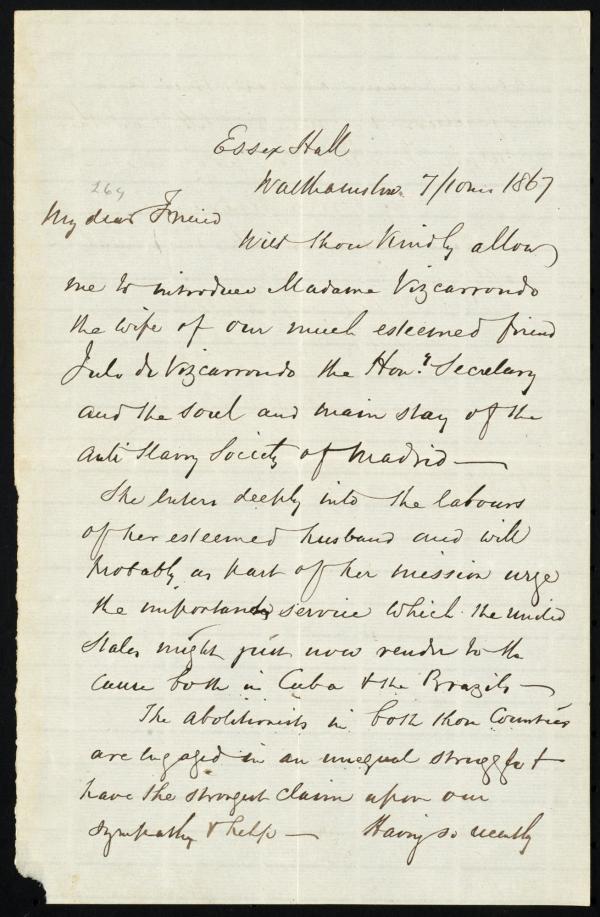 Essex Hall
Walthamstow 7/10mo 1867
264
My dear Friend
Wilt thou kindly allow
me to introduce Madame Vizcarrondo
the wife of our much esteemed friend
Julo de Vizcarrondo the Hony. Secretary
and the soul and main stay of the
Anti Slavry Society of Madrid —
She enters deeply into the labours
of her esteemed husband and will
probably as part of her mission urge
the important service which the United
States might just now render to the
cause both in Cuba & the Brazils —
The abolitionists in both those Countries
are engaged in an unequal struggle &
have the strongest claim upon our
sympathy & help — Having so recently